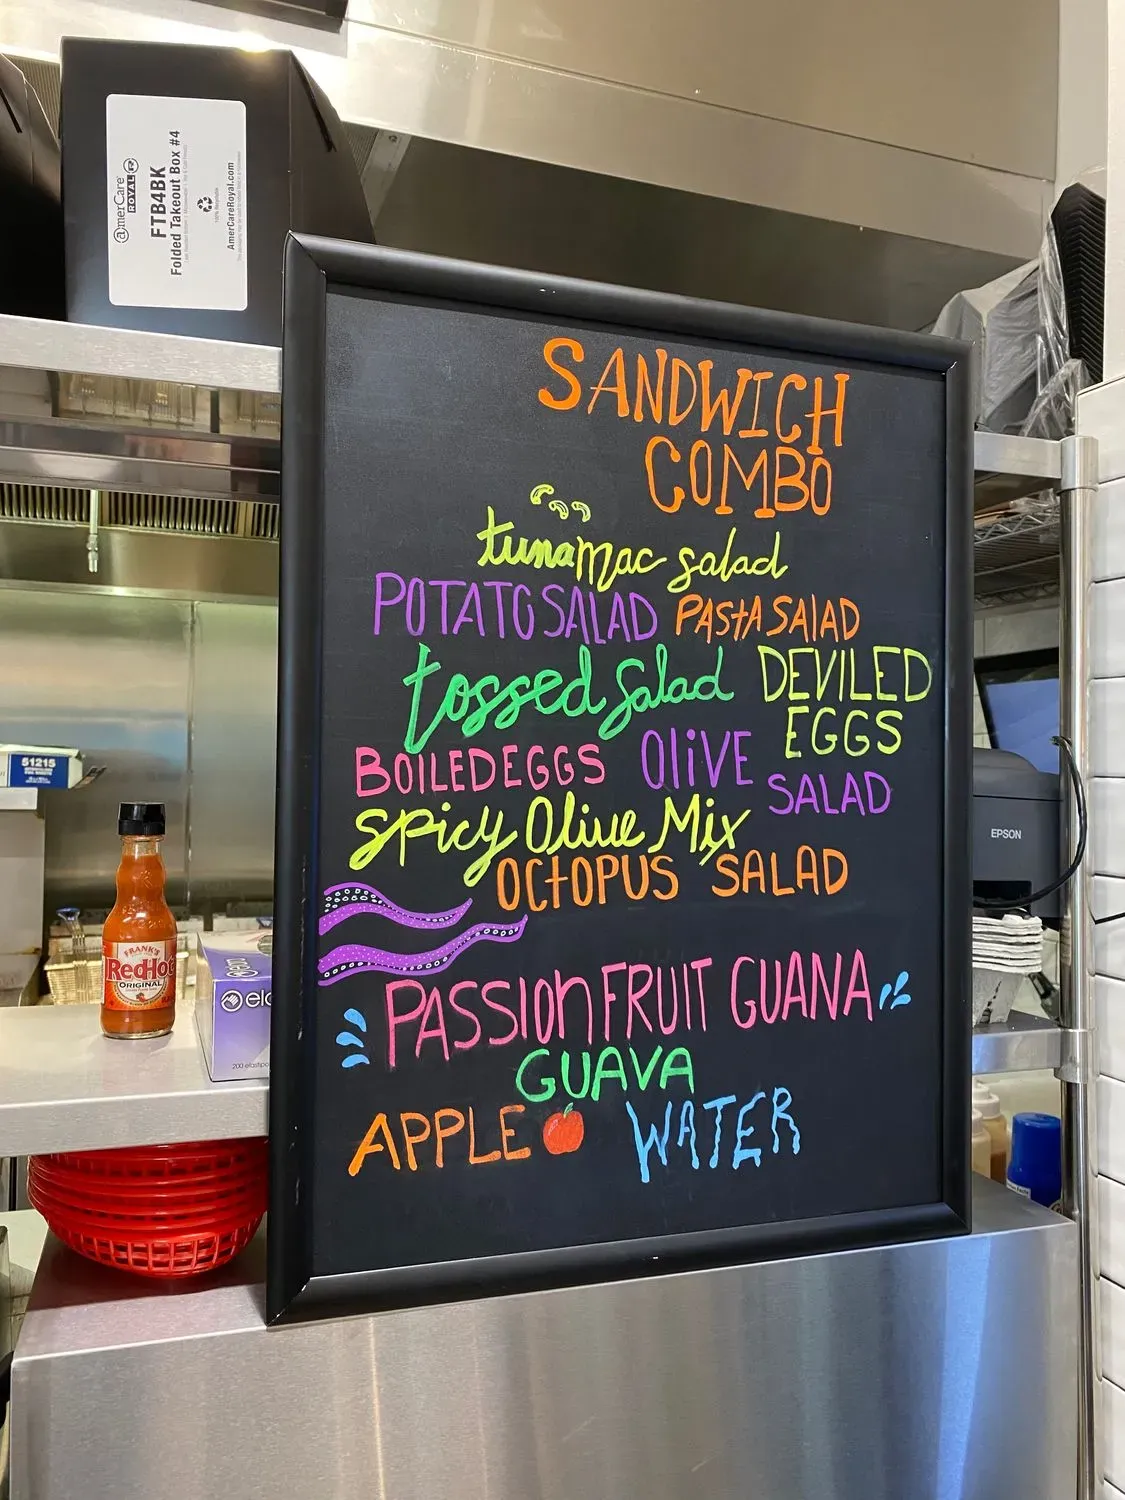 amerCare
ROYAL
FTB4BK
Folded Takeout Box #4
100% Recyclable
AmerCareRoyal.com
SANDWICH
COMBO
tuna mac salad
POTATO SALAD PASTA SALAD
tossed salad DEVILED
EGGS
BOILED EGGS OLIVE
SALAD
Spicy Olive Mix
OCTOPUS SALAD
PASSION FRUIT GUANA
GUAVA
APPLE WATER
51215
FRANK'S
RedHot
ORIGINAL
EPSON